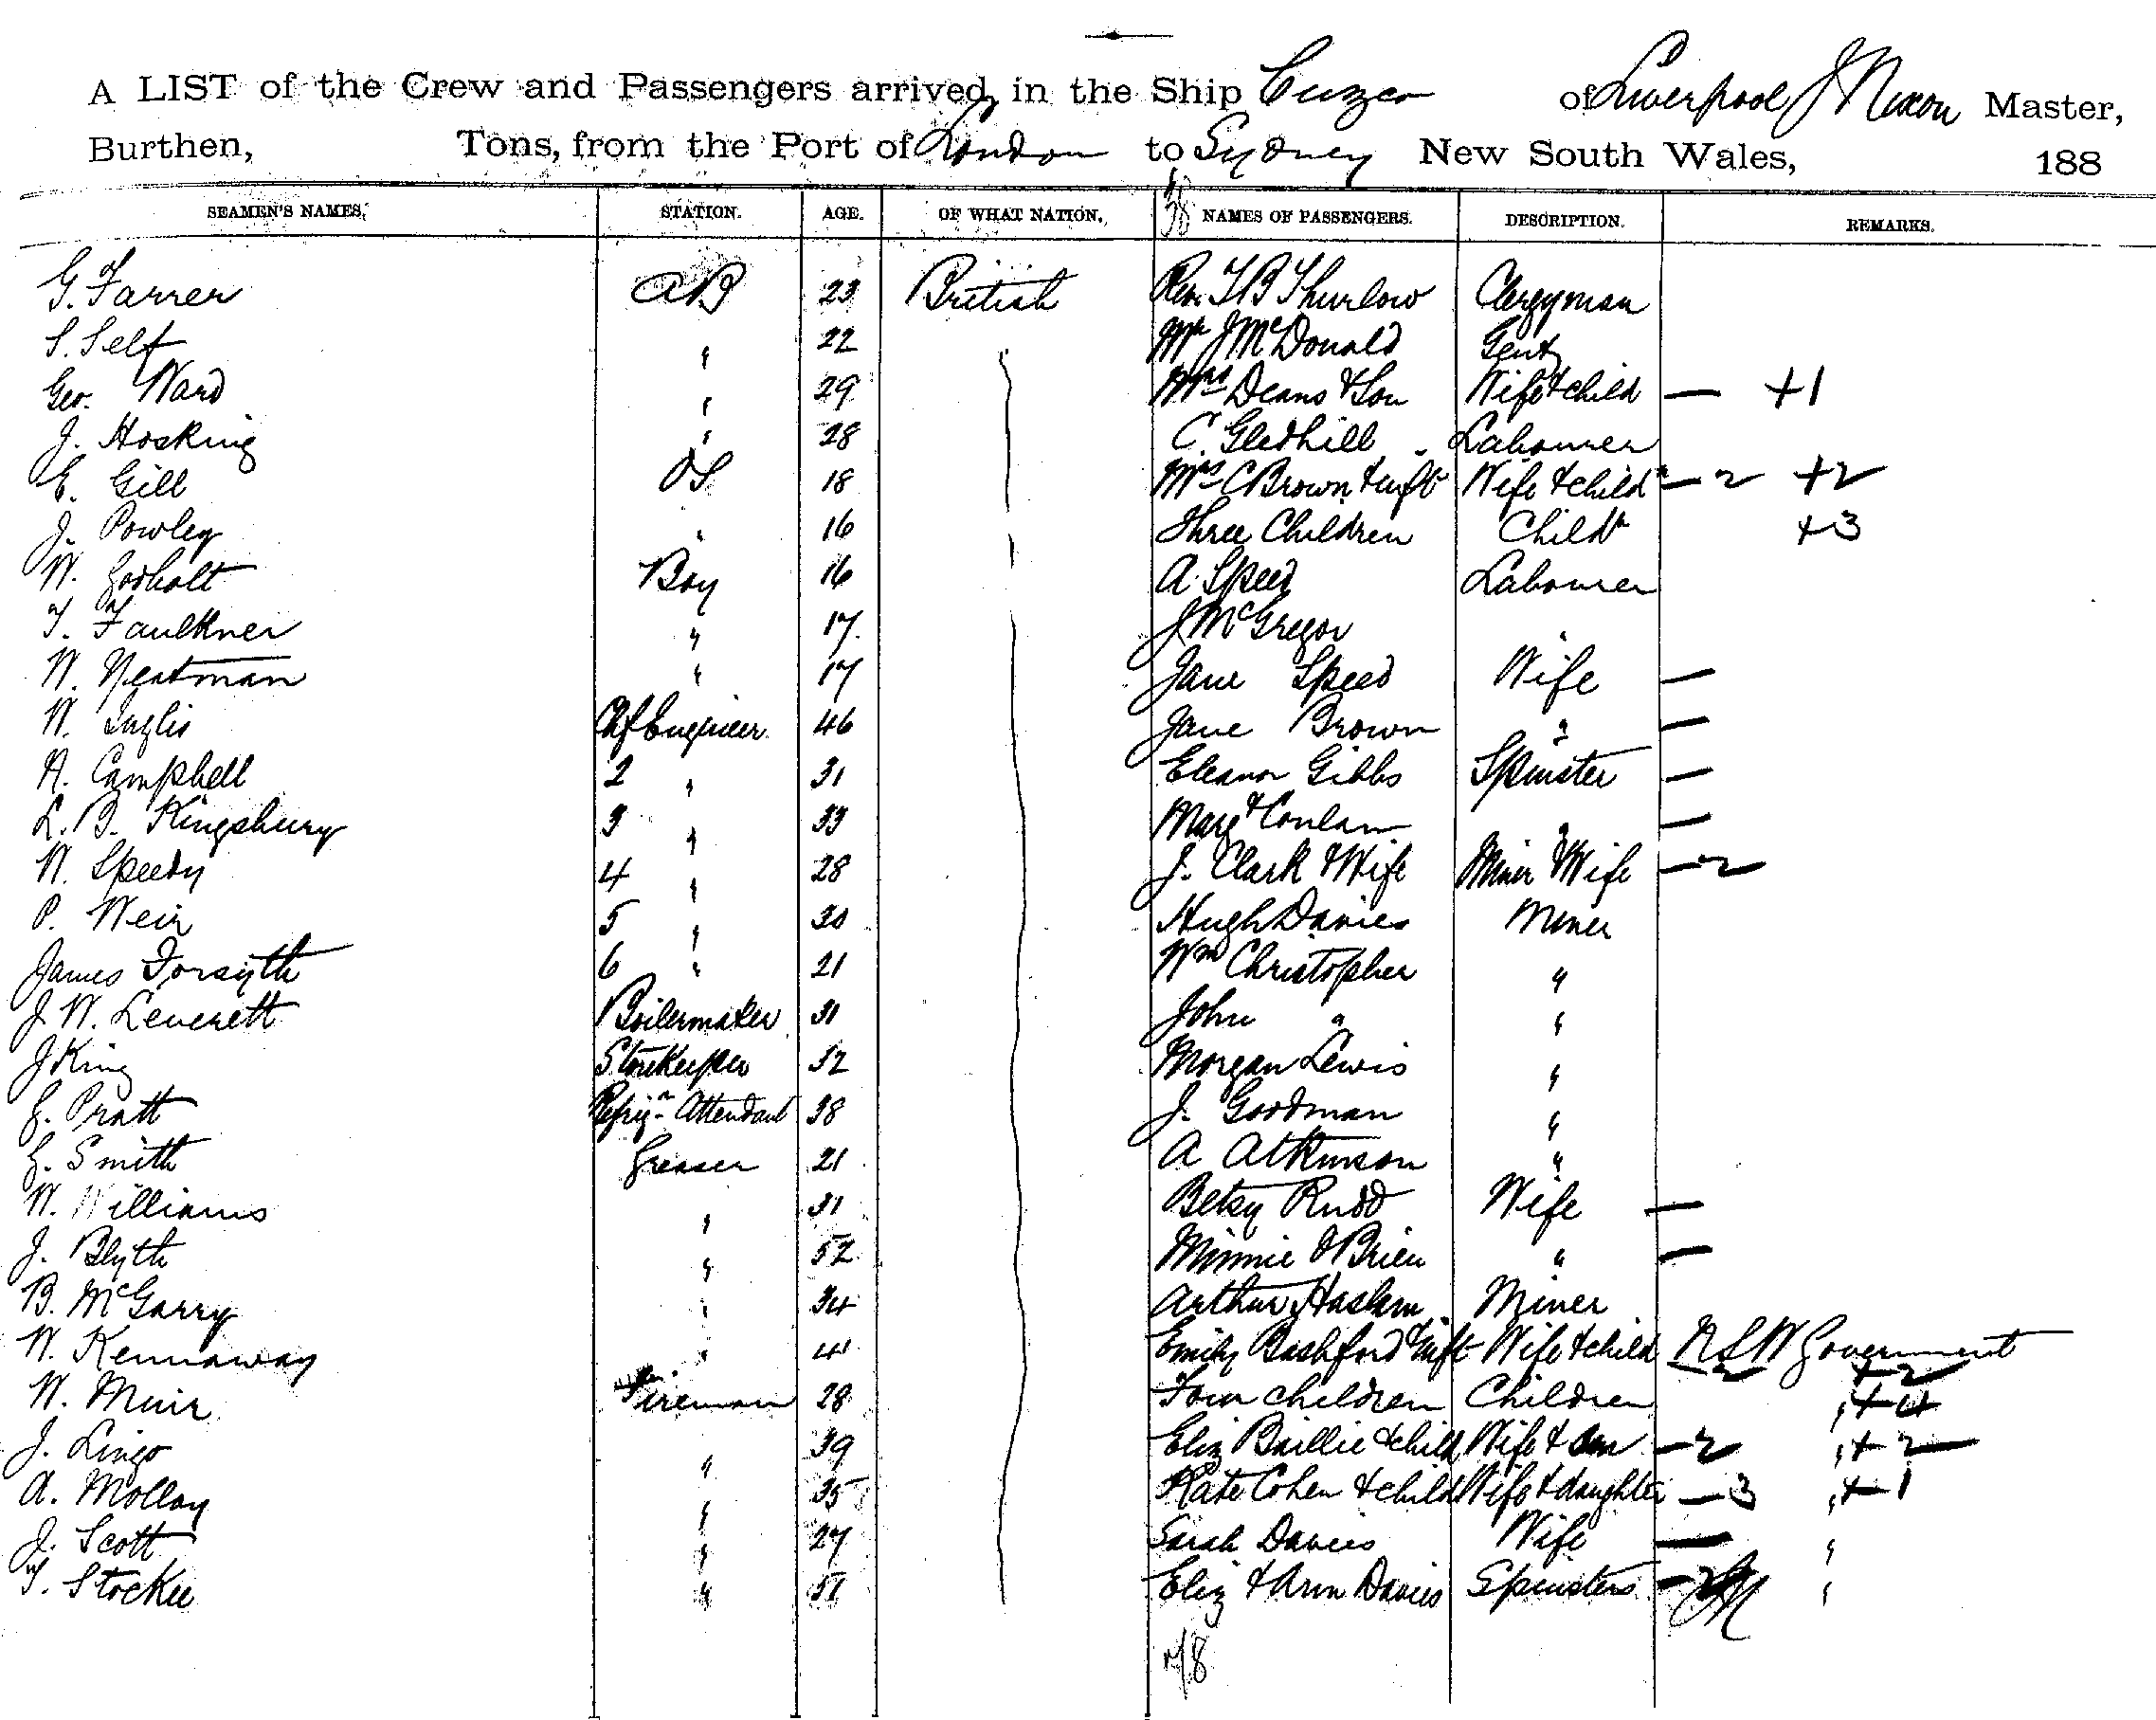 A LIST of the Crew and Passengers arrived in the Ship Cuzco of Liverpool J Nixon Master,
Burthen, Tons, from the Port of London to Sydney New South Wales, 188
SEAMEN'S NAMES. STATION. AGE. OF WHAT NATION. NAMES OF PASSENGERS. DESCRIPTION. REMARKS.
G. Farrer AB 23 British Rev. T B Thurlow Clergyman
S. Self " 22 Mr J McDonald Gent
Geo. Ward " 29 Mrs Deans & Son Wife & child — +1
J. Hosking " 28 C. Gledhill Labourer
E. Gill OS 18 Mrs C Brown & inft Wife & child — 2 +2
J. Powley " 16 Three Children Childn +3
W. Godbolt Boy 16 A. Speed Labourer
T. Faulkner " 17 J McGregor "
W. Yeatman " 17 Jane Speed Wife —
W. Inglis Chf Engineer 46 Jane Brown " —
A. Campbell 2 " 31 Eleanor Gibbs Spinster —
L. B. Kingsbury 3 " 33 Margt Conlan " —
W. Speedy 4 " 28 J. Clark & Wife Miner & Wife — 2
P. Weir 5 " 30 Hugh Davies Miner
James Forsyth 6 " 21 Wm Christopher "
J. W. Leverett Boilermaker 31 John " "
J King Storekeeper 32 Morgan Lewis "
G. Pratt Refrign Attendant 38 J. Goodman "
G. Smith Greaser 21 A Atkinson "
W. Williams " 31 Betsy Rudd Wife —
J. Blyth " 52 Minnie O'Brien " —
B. McGarry " 34 Arthur Haslam Miner
W. Kennaway " 41 Emily Bashford & inft Wife & child NSW Government — 2 +2
W. Muir Fireman 28 Four children Children " +4
J. Lingo " 39 Eliz Baillie & child Wife & son — 2 " +2
A. Molloy " 35 Kate Cohen & child Wife & daughter — 3 " +1
J. Scott " 27 Sarah Davies Wife — "
T. Stockee " 51 Eliz & Ann Davies Spinsters — 2 "